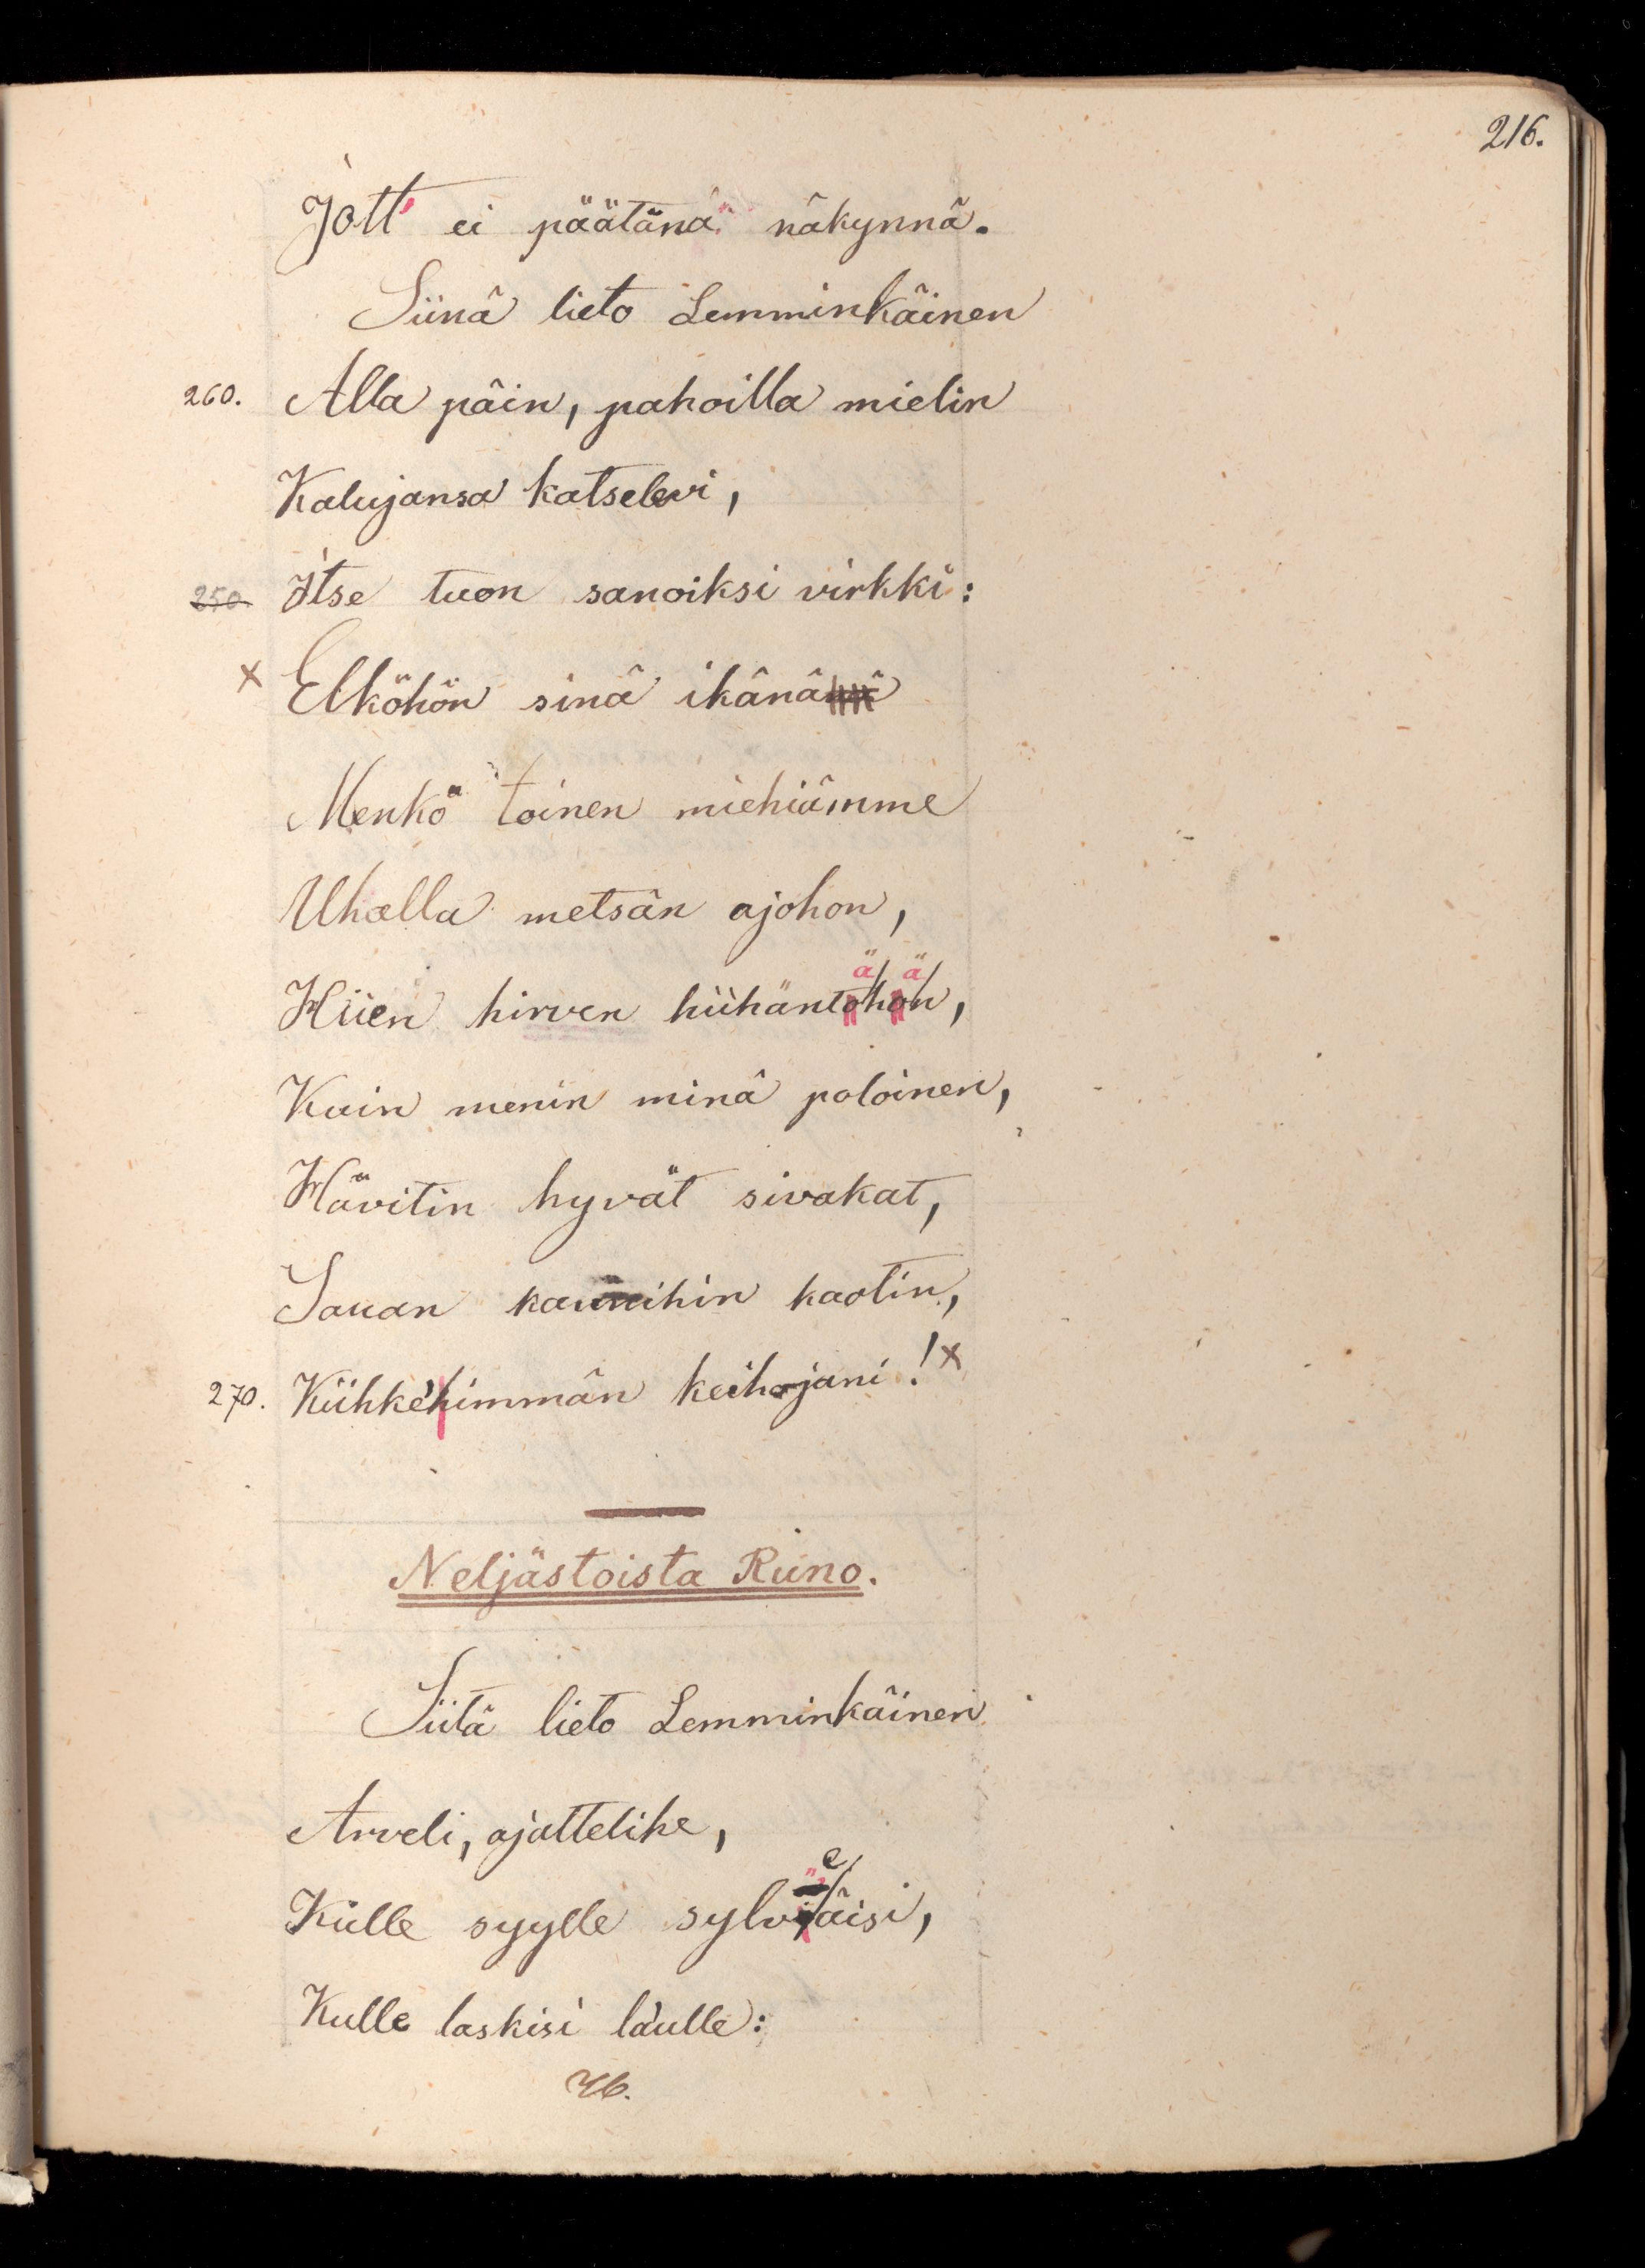 216.
Jott' ei päätänä näkynnä.
Siinä lieto Lemminkäinen
260. Alla päin, pahoilla mielin
Kalujansa katselevi,
250 Itse tuon sanoiksi virkki:
x Elköhön sinä ikänä
Menkö toinen miehiämme
Uhalla metsän ajohon,
ä ä
Hiien hirven hiihäntohon,
Kuin menin minä poloinen,
Hävitin hyvät sivakat,
Sauan kaunihin kaotin,
270. Kiihkehimmän keihojani! x
Neljästoista Runo.
Siitä lieto Lemminkäinen
Arveli, ajattelihe,
e
Külle syylle sylviäisi,
Kulle laskisi laulle:
46.